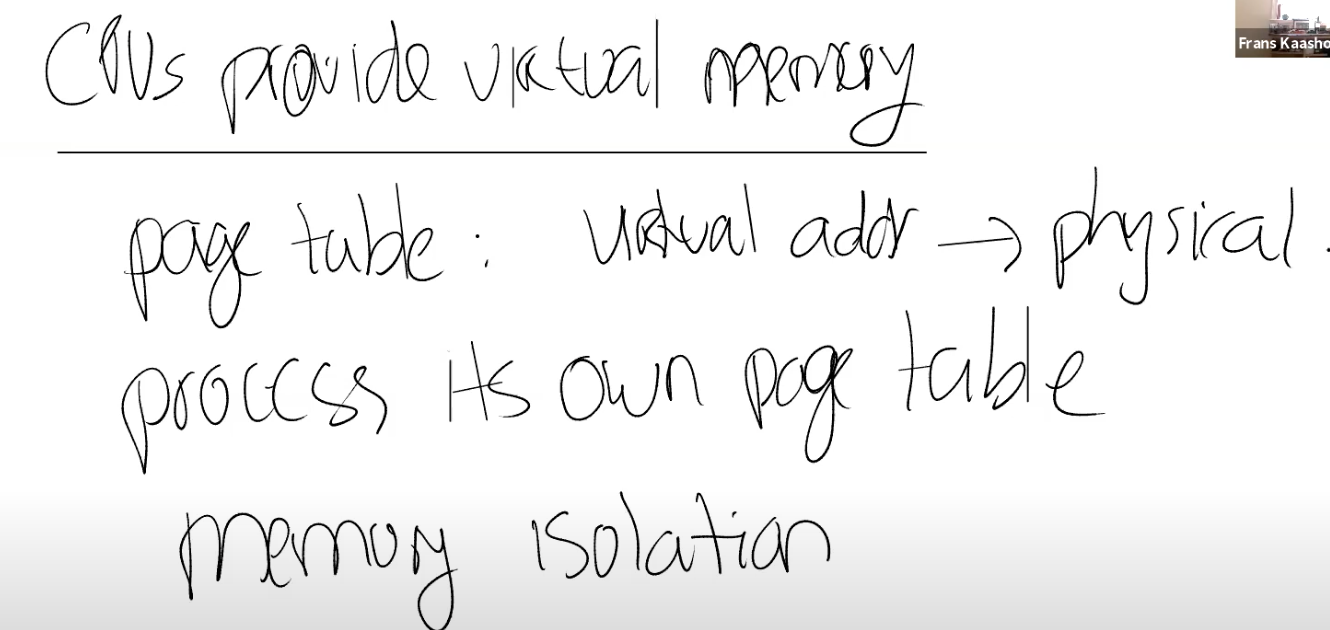 Frans Kaasho
CPUs provide virtual memory
page table : virtual addr → physical .
process its own page table
memory isolation